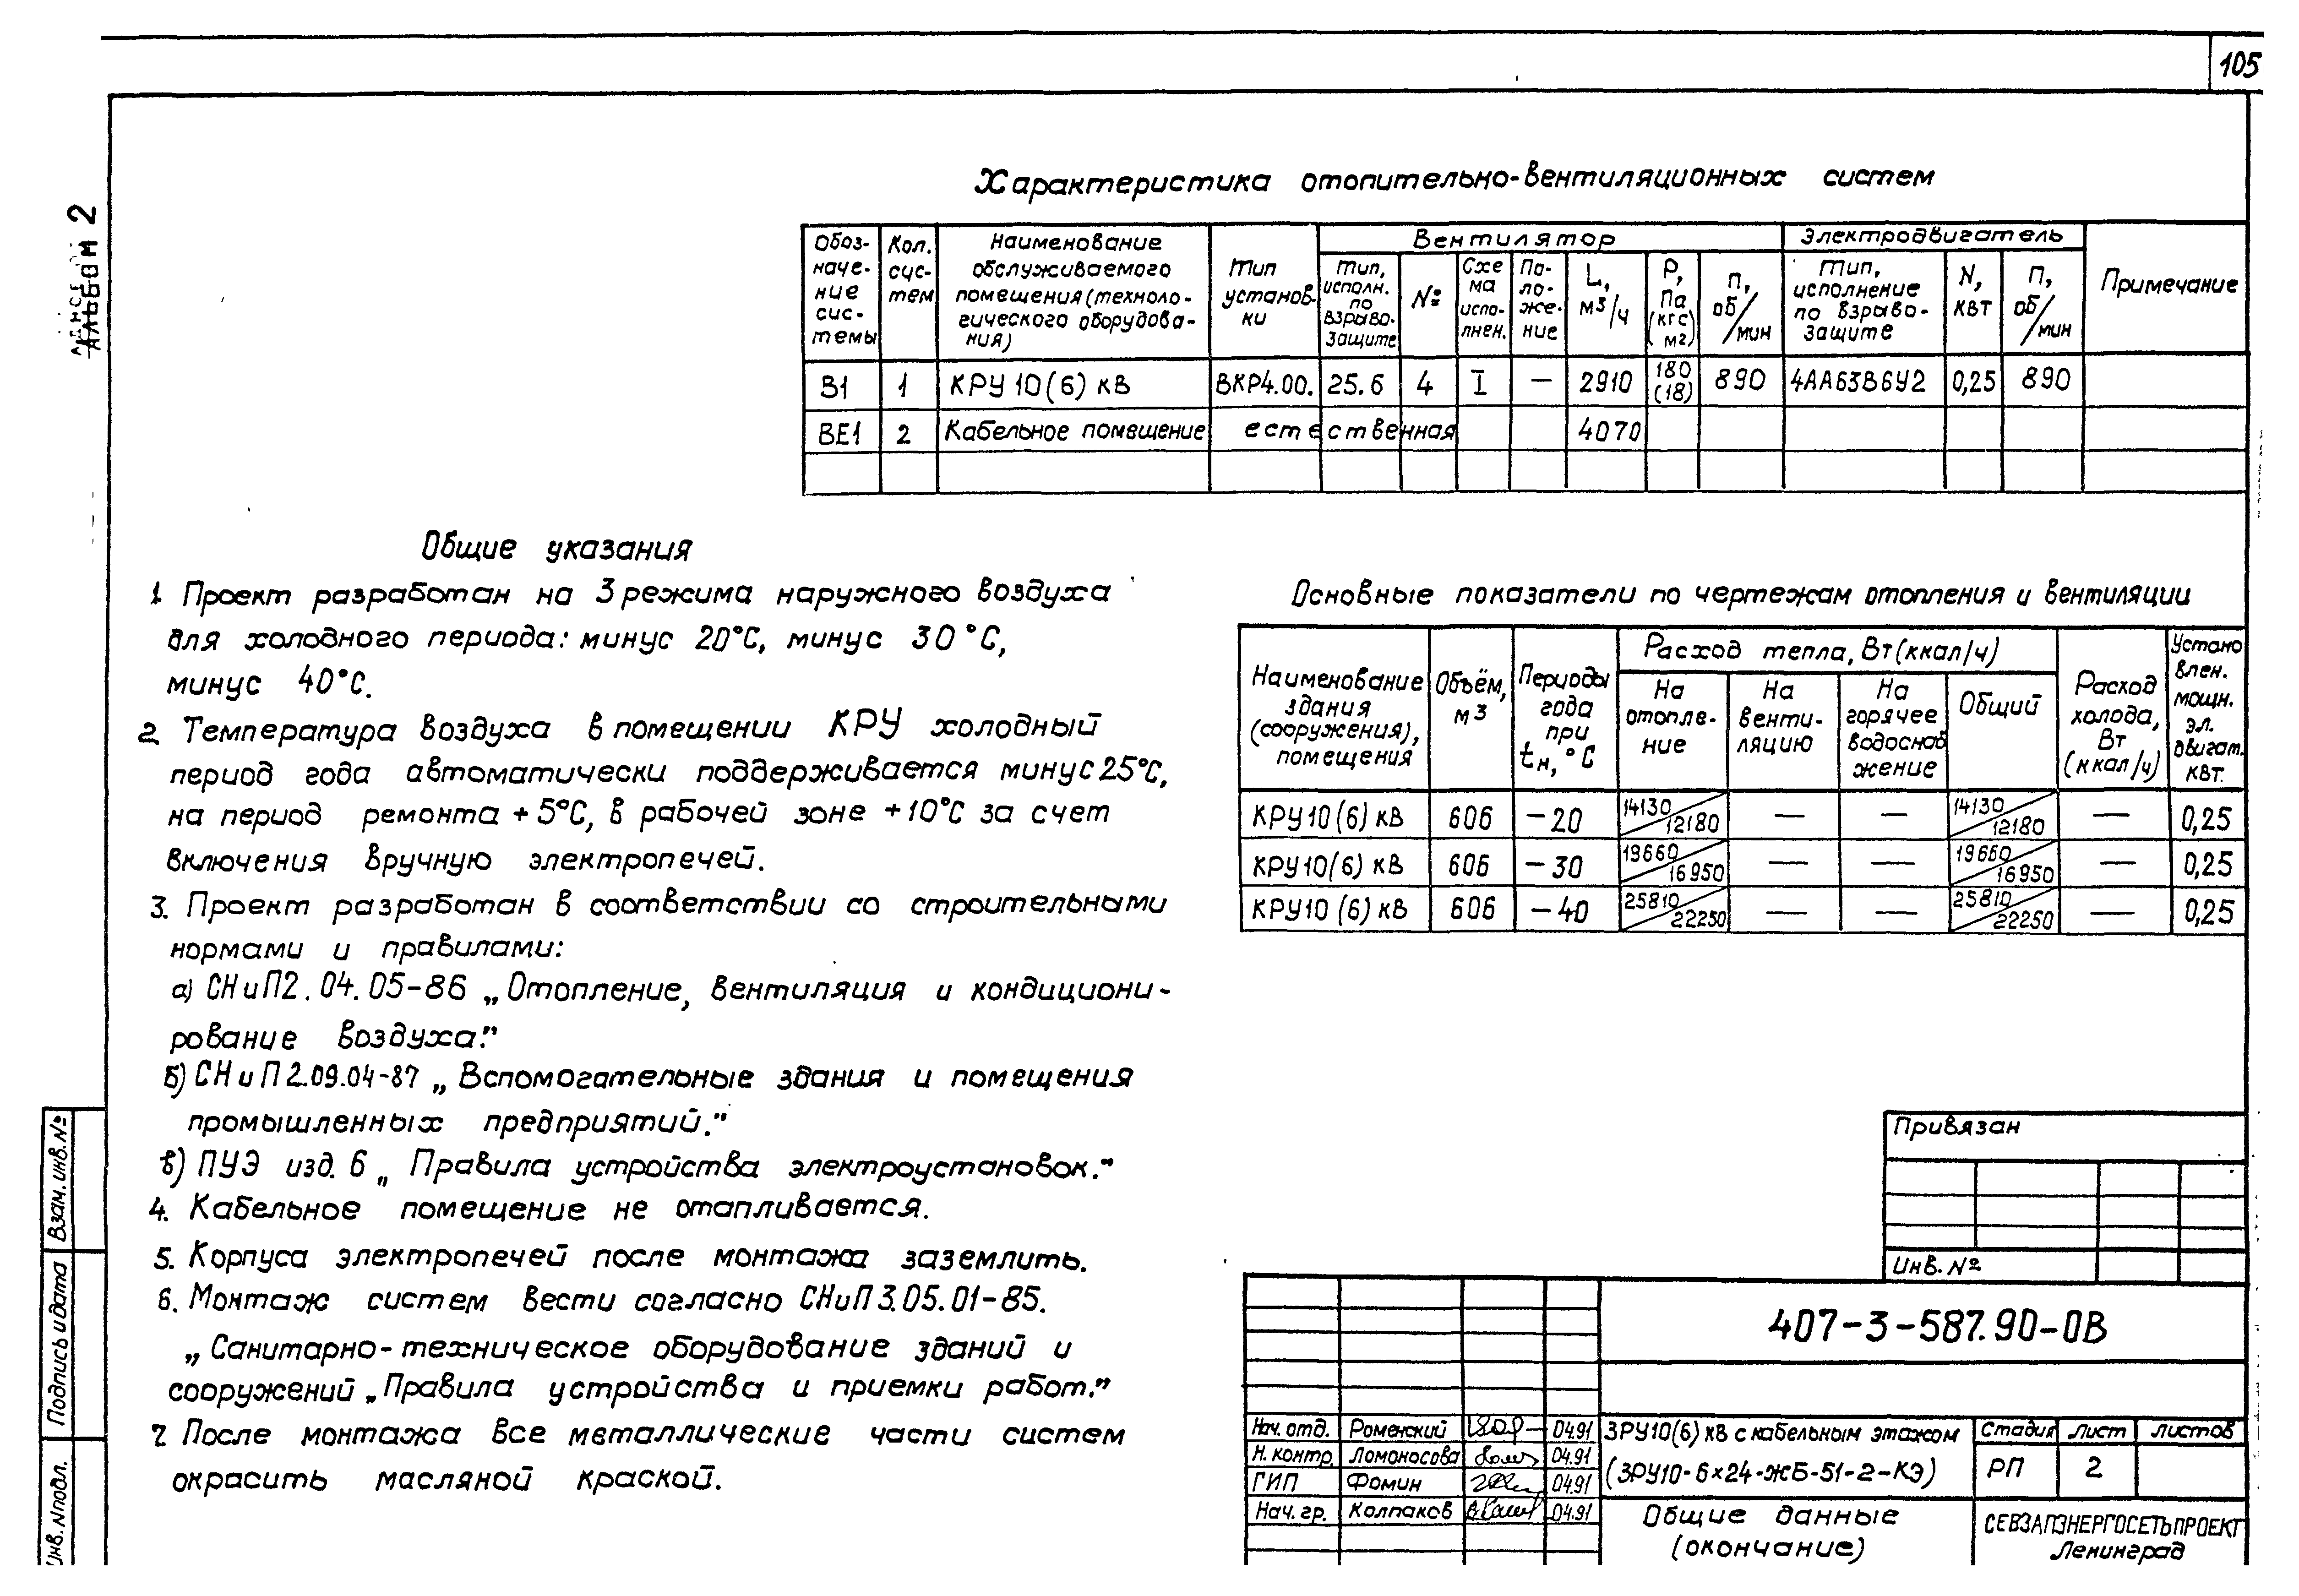 105
Альбом 2
Характеристика отопительно-вентиляционных систем
Обоз-
наче-
ние
сис-
темы
Кол.
сис-
тем
Наименование
обслуживаемого
помещения (техноло-
гического оборудова-
ния)
Тип
установ-
ки
Вентилятор
Тип,
исполн.
по
взрыво-
защите
№
Схе
ма
испо-
лнен.
По-
ло-
же-
ние
L,
м3/ч
Р,
Па
(кгс)
(м2)
п,
об/мин
Электродвигатель
Тип,
исполнение
по взрыво-
защите
N,
квт
п,
об/мин
Примечание
В1 1 КРУ 10(6) кВ ВКР4.00. 25.6 4 I — 2910 180 (18) 890 4АА63В6У2 0,25 890
ВЕ1 2 Кабельное помещение естественная 4070
Общие указания
1. Проект разработан на 3 режима наружного воздуха
для холодного периода: минус 20°С, минус 30°С,
минус 40°С.
2. Температура воздуха в помещении КРУ холодный
период года автоматически поддерживается минус 25°С,
на период ремонта +5°С, в рабочей зоне +10°С за счет
включения вручную электропечей.
3. Проект разработан в соответствии со строительными
нормами и правилами:
а) СНиП2.04.05-86 „Отопление, вентиляция и кондициони-
рование воздуха."
б) СНиП 2.09.04-87 „Вспомогательные здания и помещения
промышленных предприятий."
в) ПУЭ изд. 6 „Правила устройства электроустановок."
4. Кабельное помещение не отапливается.
5. Корпуса электропечей после монтажа заземлить.
6. Монтаж систем вести согласно СНиП 3.05.01-85.
„Санитарно-техническое оборудование зданий и
сооружений „Правила устройства и приемки работ."
7. После монтажа все металлические части систем
окрасить масляной краской.
Основные показатели по чертежам отопления и вентиляции
Наименование
здания
(сооружения),
помещения
Объём,
м3
Периоды
года
при
tн,°С
Расход тепла, Вт (ккал/ч)
На
отопле-
ние
На
венти-
ляцию
На
горячее
водоснаб
жение
Общий
Расход
холода,
Вт
(ккал/ч)
Устано
влен.
мощн.
эл.
двигат.
квт.
КРУ10(6) кВ 606 -20 14130/12180 — — 14130/12180 — 0,25
КРУ10(6) кВ 606 -30 19660/16950 — — 19660/16950 — 0,25
КРУ10 (6) кВ 606 -40 25810/22250 — — 25810/22250 — 0,25
Привязан
Инв. №
407-3-587.90-ОВ
Нач. отд. Роменский 04.91
Н. контр. Ломоносова 04.91
ГИП Фомин 04.91
Нач. гр. Колпаков 04.91
ЗРУ10(6) кВ с кабельным этажом
(ЗРУ10-6х24-ЖБ-51-2-КЭ)
Стадия Лист Листов
РП 2
Общие данные
(окончание)
СЕВЗАПЭНЕРГОСЕТЬПРОЕКТ
Ленинград
Взам. инв. №
Подпись и дата
Инв. № подл.